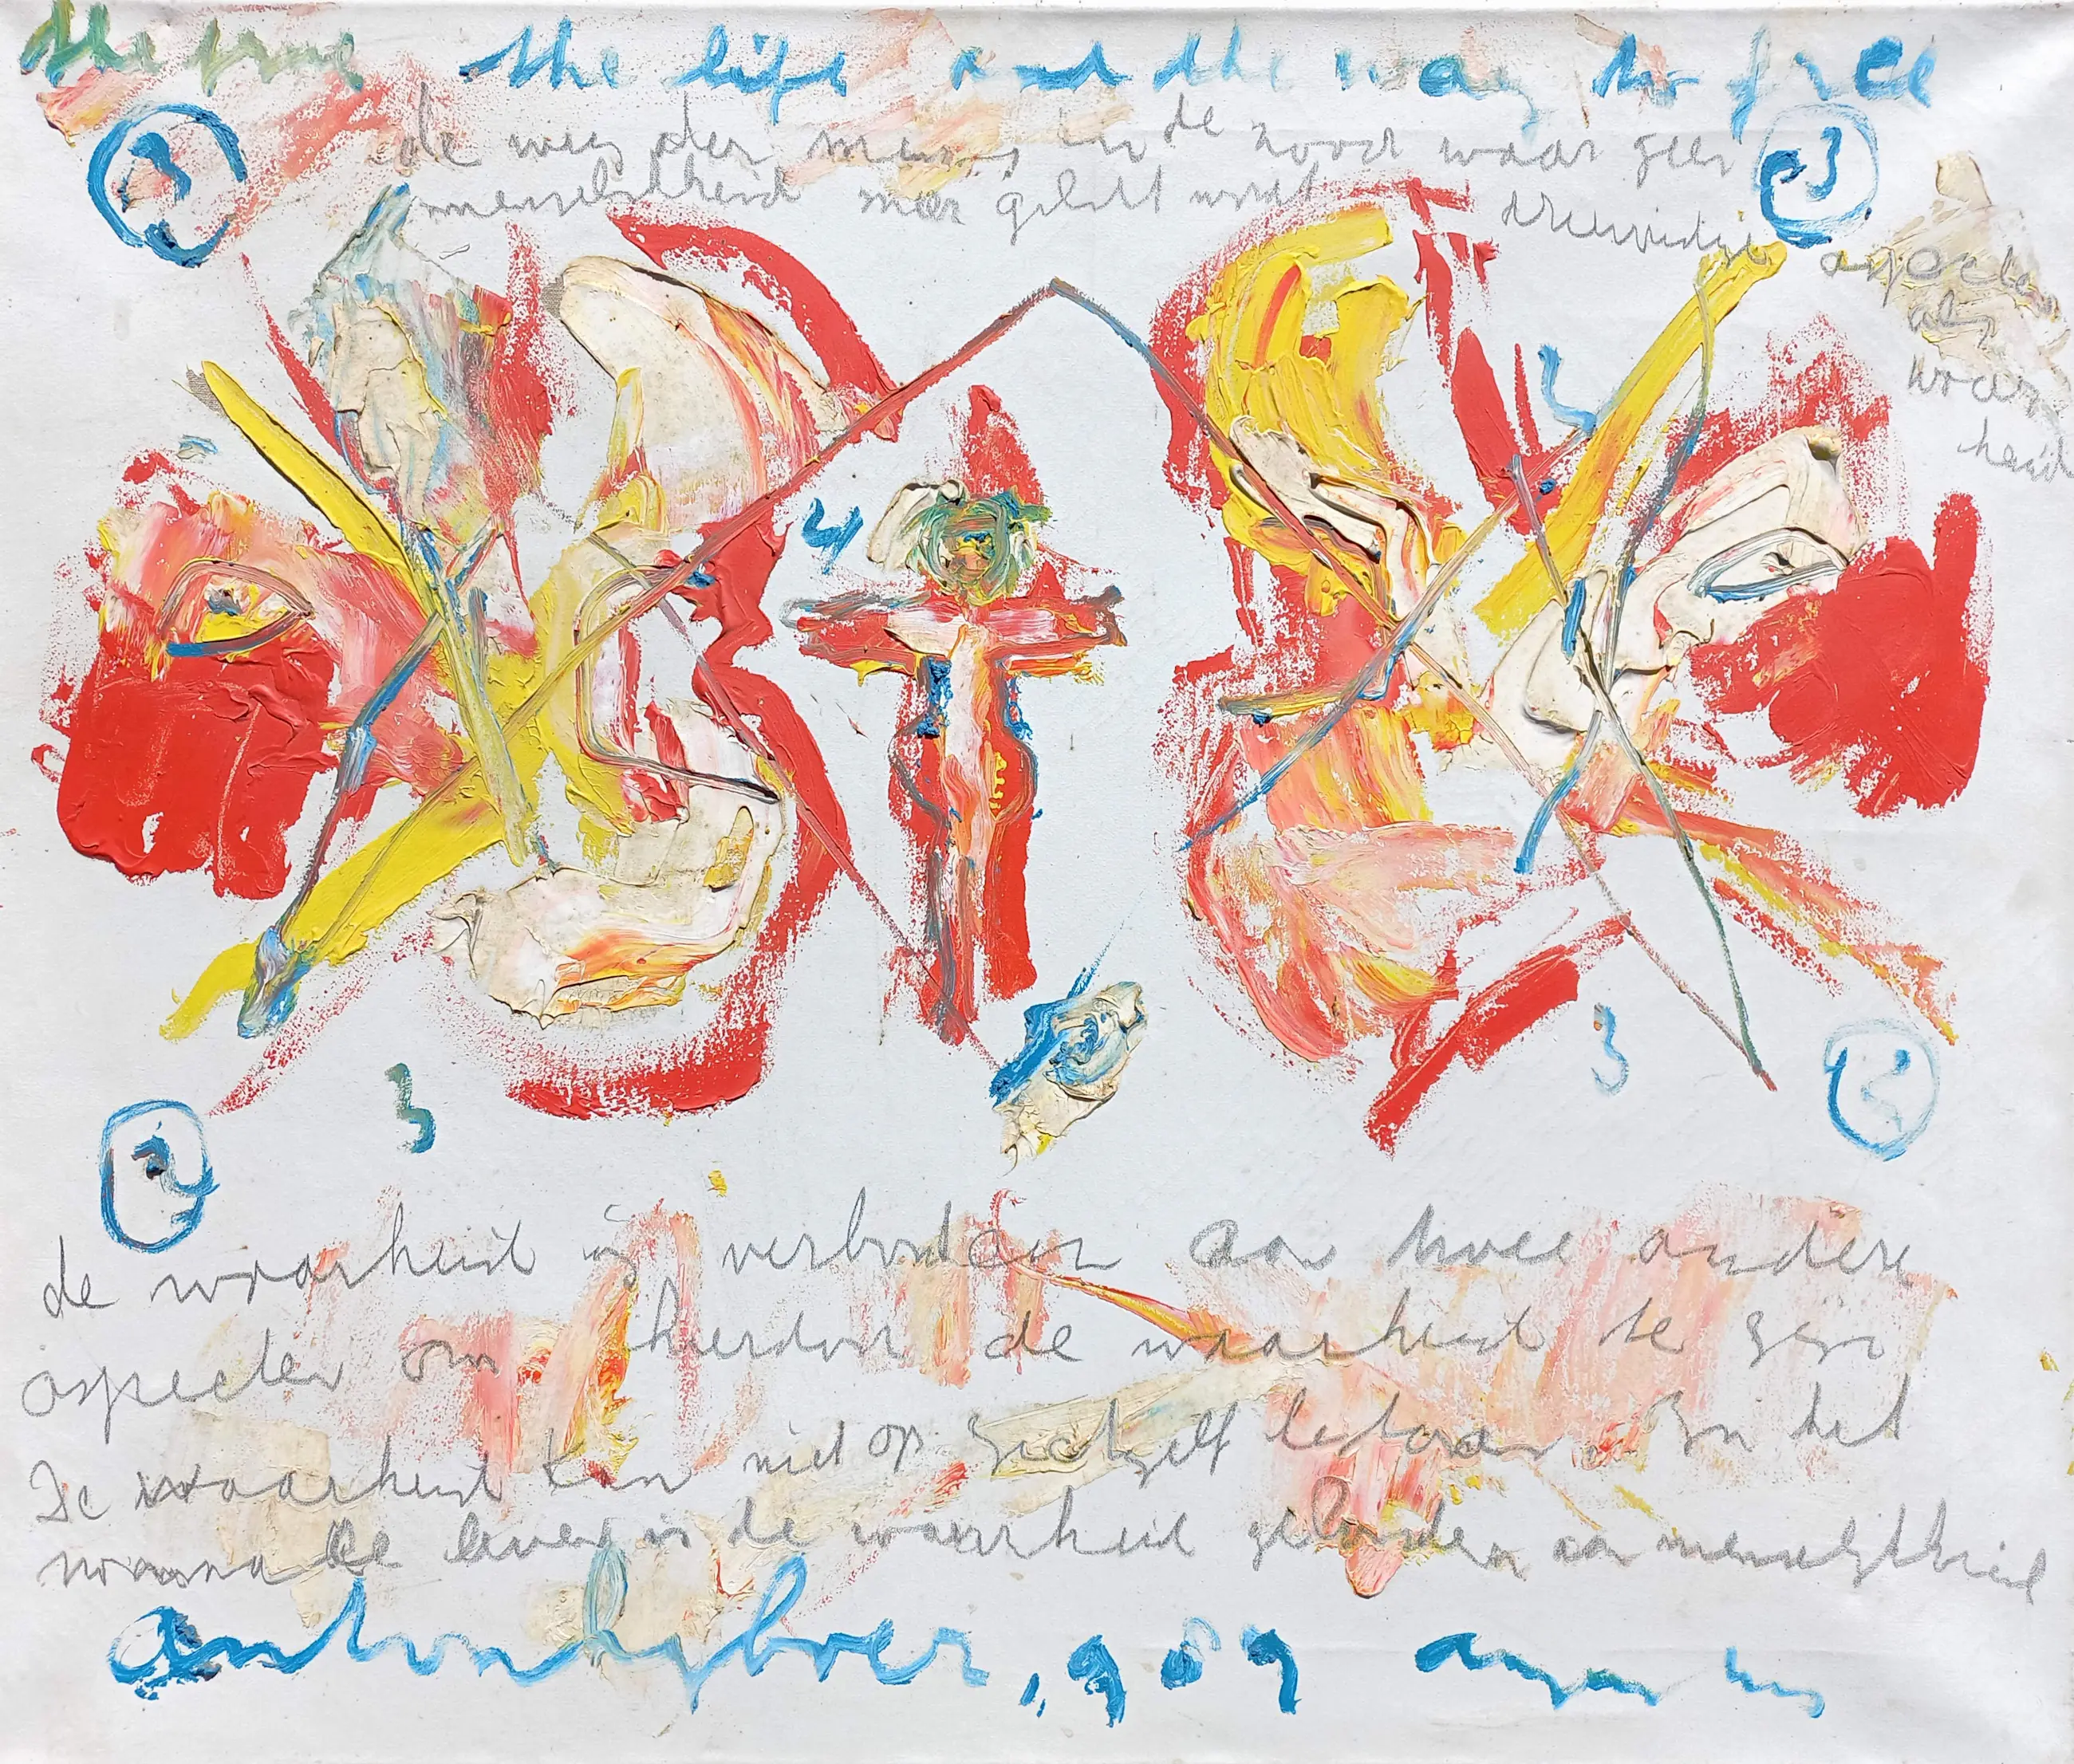 the life and the way to free
3
3
de weg der mens in de nood waar geen
menselijkheid meer geleefd wordt
drievoudige
aspecten
als
waar
heid
2
4
3
3
2
2
de waarheid is verbonden aan twee andere
aspecten om hierdoor de waarheid te zijn
De waarheid kan niet op zichzelf bestaan. In het
leven is de waarheid gebonden aan menselijkheid
anton heyboer, 989